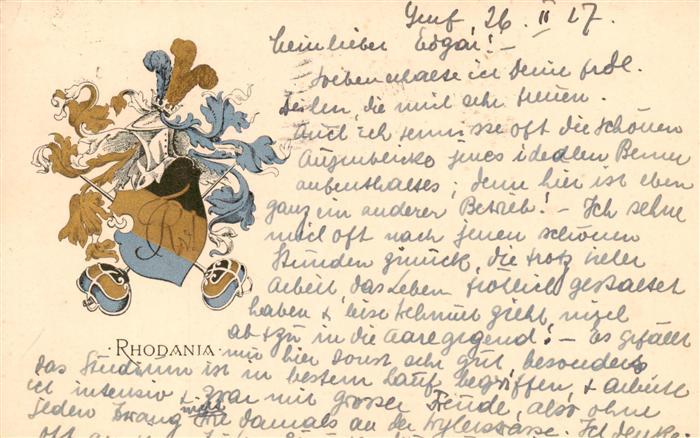 Genf, 26. II 27.
Mein lieber Edgar! –
Soeben erhalte ich Deine frdl.
Zeilen, die mich sehr freuen.
Auch ich vermisse oft die schönen
Augenblicke jenes idealen Berner
aufenthaltes; denn hier ist eben
ganz ein anderer Betrieb! – Ich sehne
mich oft nach jenen schönen
Stunden zurück, die trotz vieler
Arbeit, das Leben fröhlich gestaltet
haben & leise Sehnsucht zieht mich
ab & zu in die Aaregegend! – Es gefällt
mir hier sonst sehr gut, besonders
das Studium ist in bestem Lauf begriffen, & arbeite
ich intensiv & zwar mit grosser Freude, also ohne
jeden Zwang nicht wie damals an der Wylerstrasse. Ich denke
oft an
RHODANIA